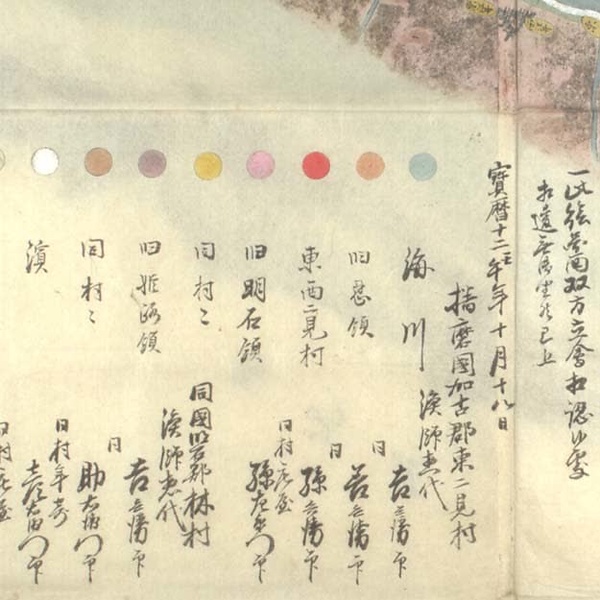 一此絵図面双方立會相認少茂
相違無御座候已上
寳暦十二壬午年十月十八日
播磨國加古郡東二見村
漁師惣代
吉兵衛印
同
若兵衛印
同
孫兵衛印
同村庄屋
孫左衛門印
同國明石郡林村
漁師惣代
吉兵衛印
同
助右衛門印
同村年寄
海川
旧忍領
東西二見村
旧明石領
同村〻
旧姫路領
同村〻
濱